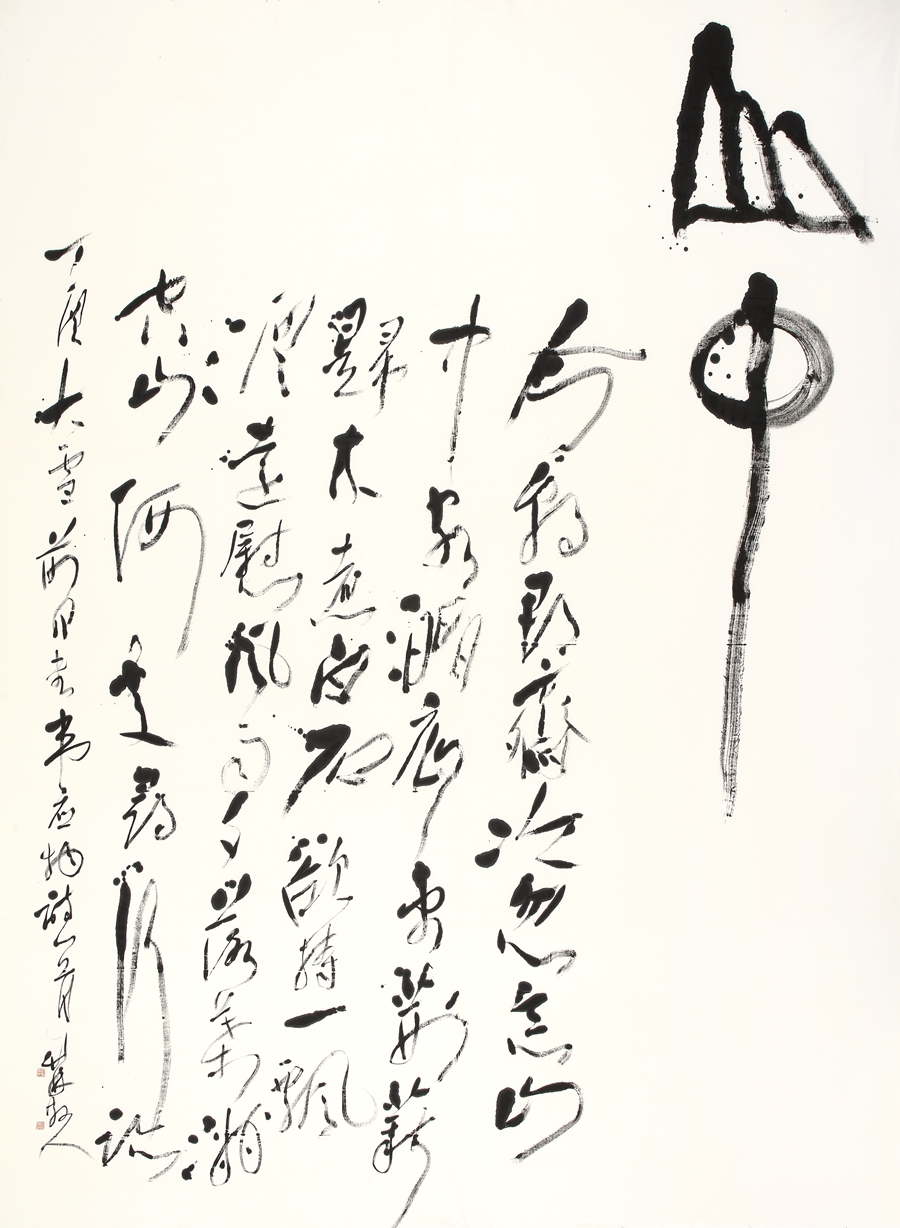 山中
今朝郡齋冷忽念山
中客澗底束荊薪
歸来煮白石欲持一飄
酒遠慰風雨夕落葉滿
空山何處尋行跡
丁酉大雪前日书韦应物詩一首